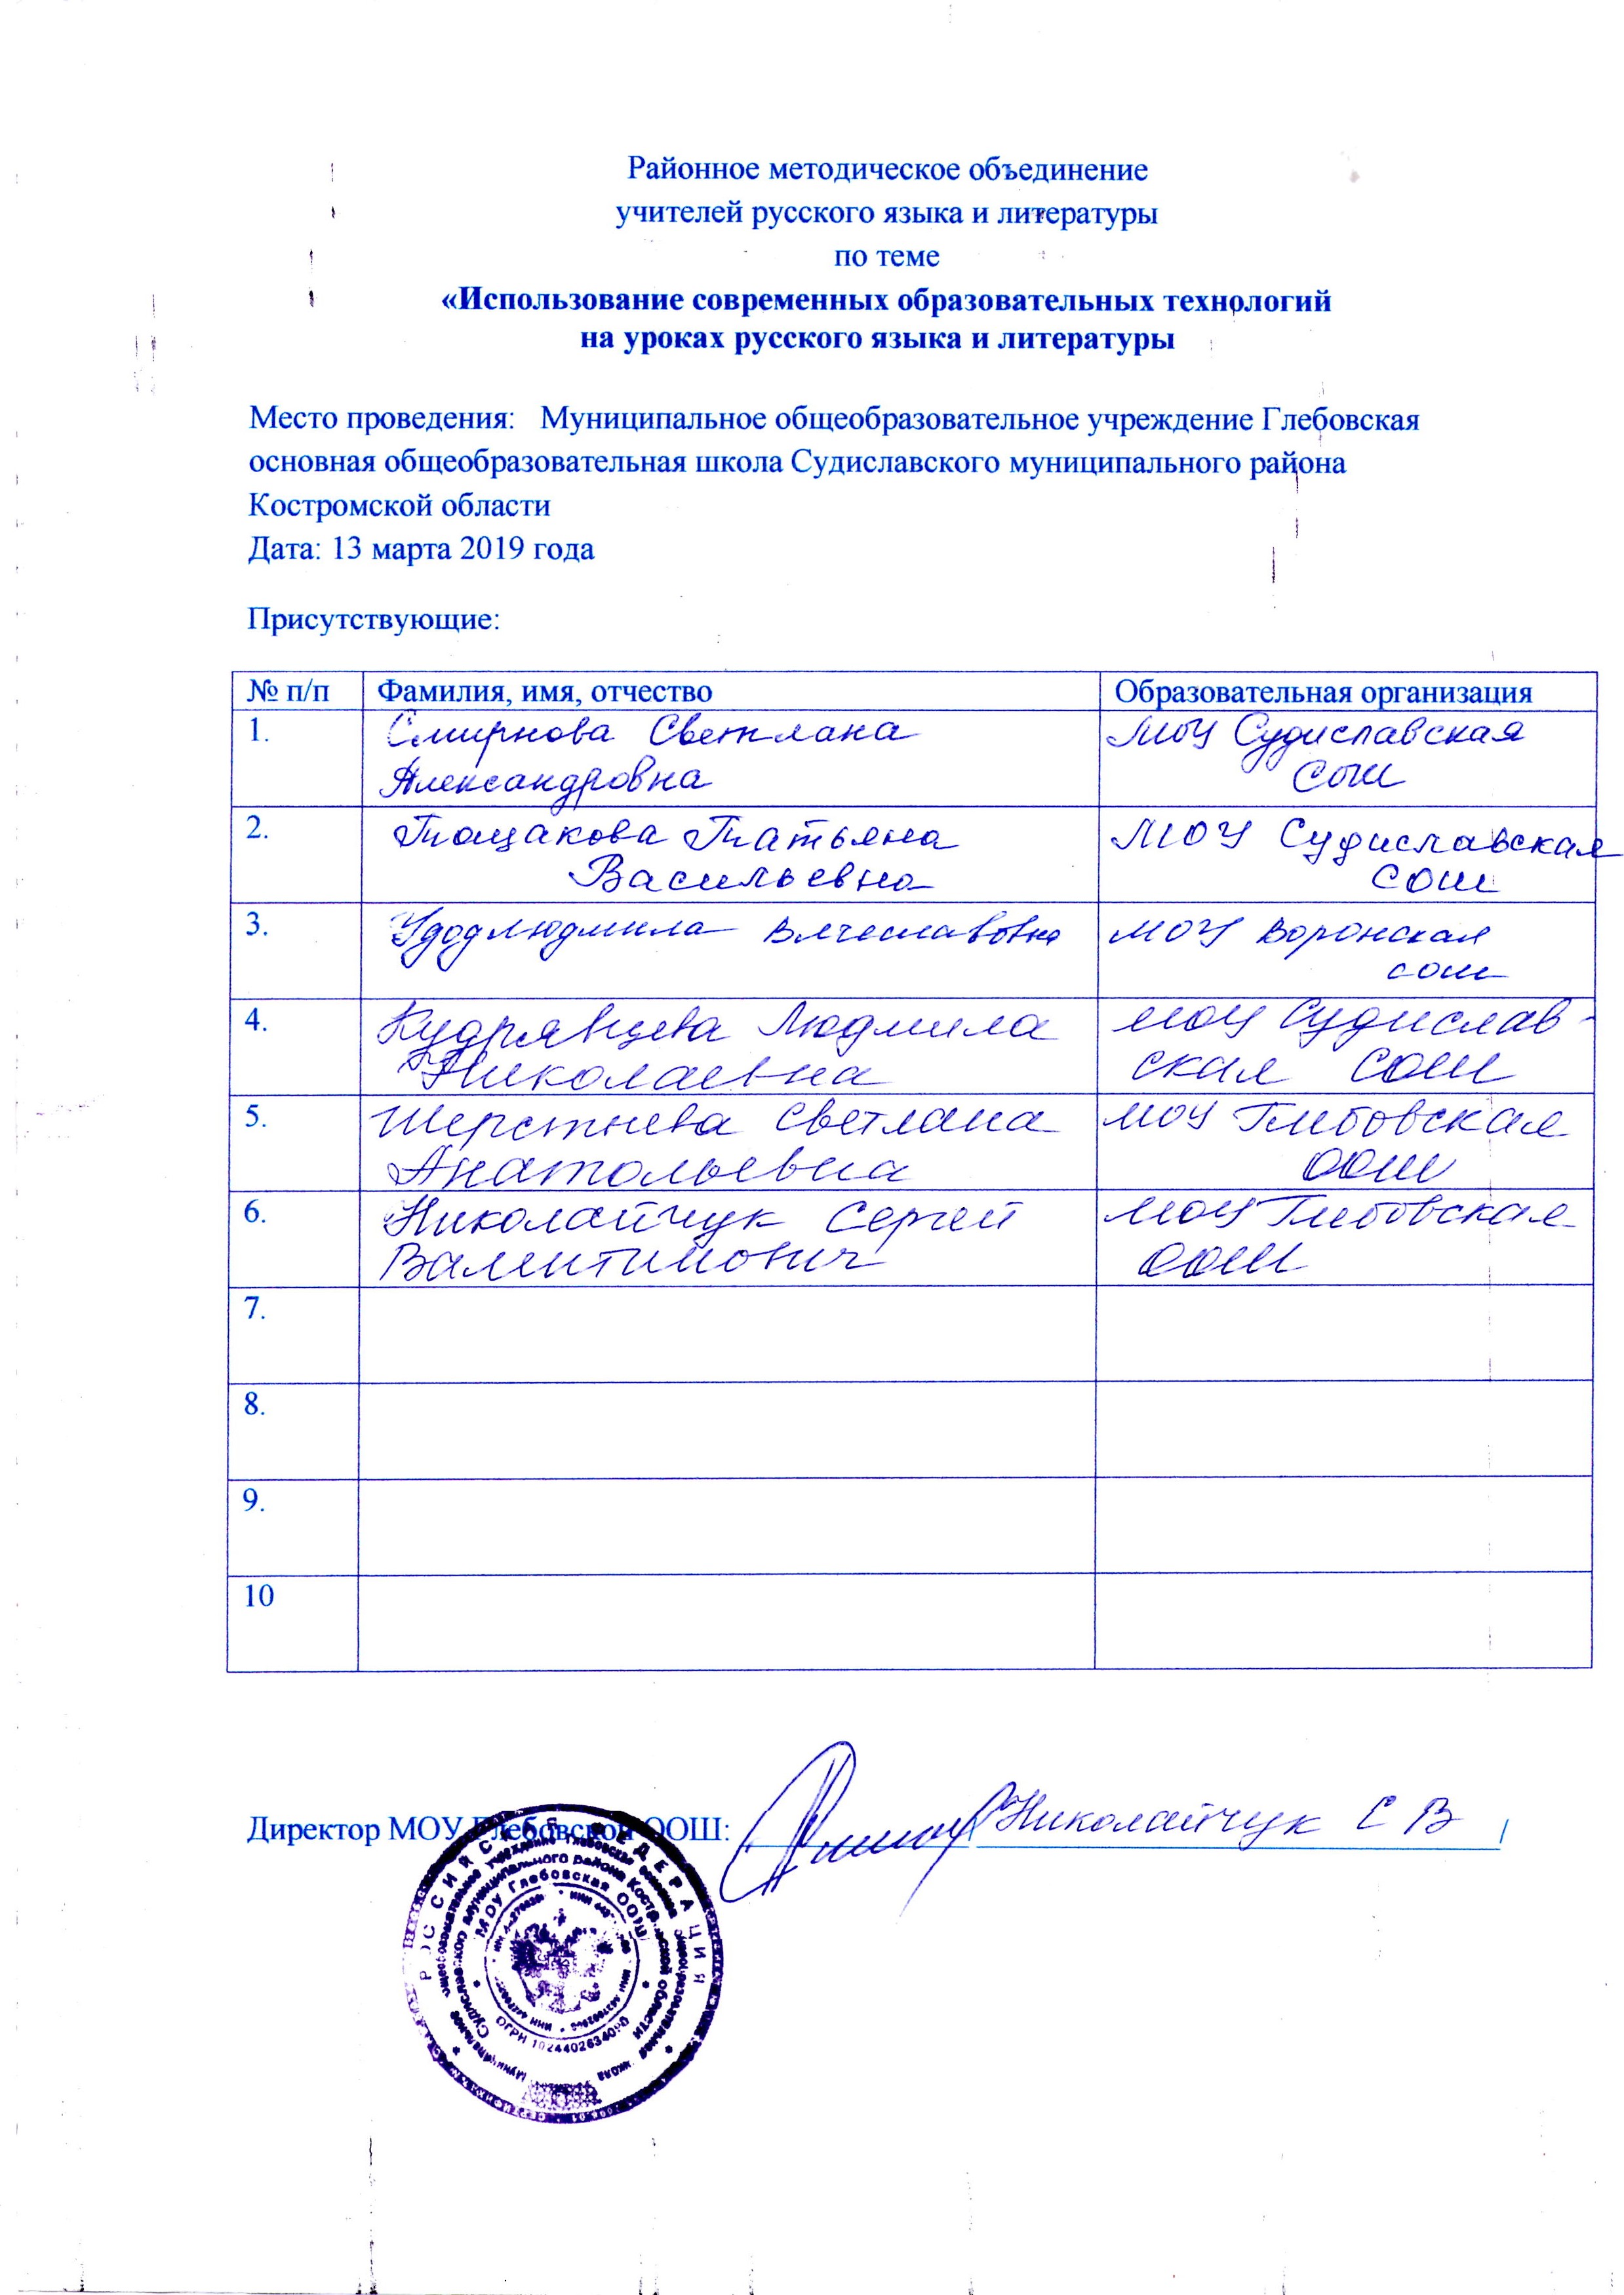 Районное методическое объединение
учителей русского языка и литературы
по теме
«Использование современных образовательных технологий
на уроках русского языка и литературы
Место проведения: Муниципальное общеобразовательное учреждение Глебовская
основная общеобразовательная школа Судиславского муниципального района
Костромской области
Дата: 13 марта 2019 года
Присутствующие:
№ п/п Фамилия, имя, отчество Образовательная организация
1. Смирнова Светлана МОУ Судиславская
Александровна СОШ
2. Тощакова Татьяна МОУ Судиславская
Васильевна СОШ
3. Удод Людмила Вячеславовна МОУ Воронская
СОШ
4. Кудрявцева Людмила МОУ Судислав-
Николаевна ская СОШ
5. Шерстнева Светлана МОУ Глебовская
Анатольевна ООШ
6. Николайчук Сергей МОУ Глебовская
Валентинович ООШ
7.
8.
9.
10
Директор МОУ Глебовской ООШ: / Николайчук С В /
РОССИЙСКАЯ ФЕДЕРАЦИЯ
Судиславского муниципального района Костромской области
МОУ Глебовская ООШ
ОГРН 1024402634090